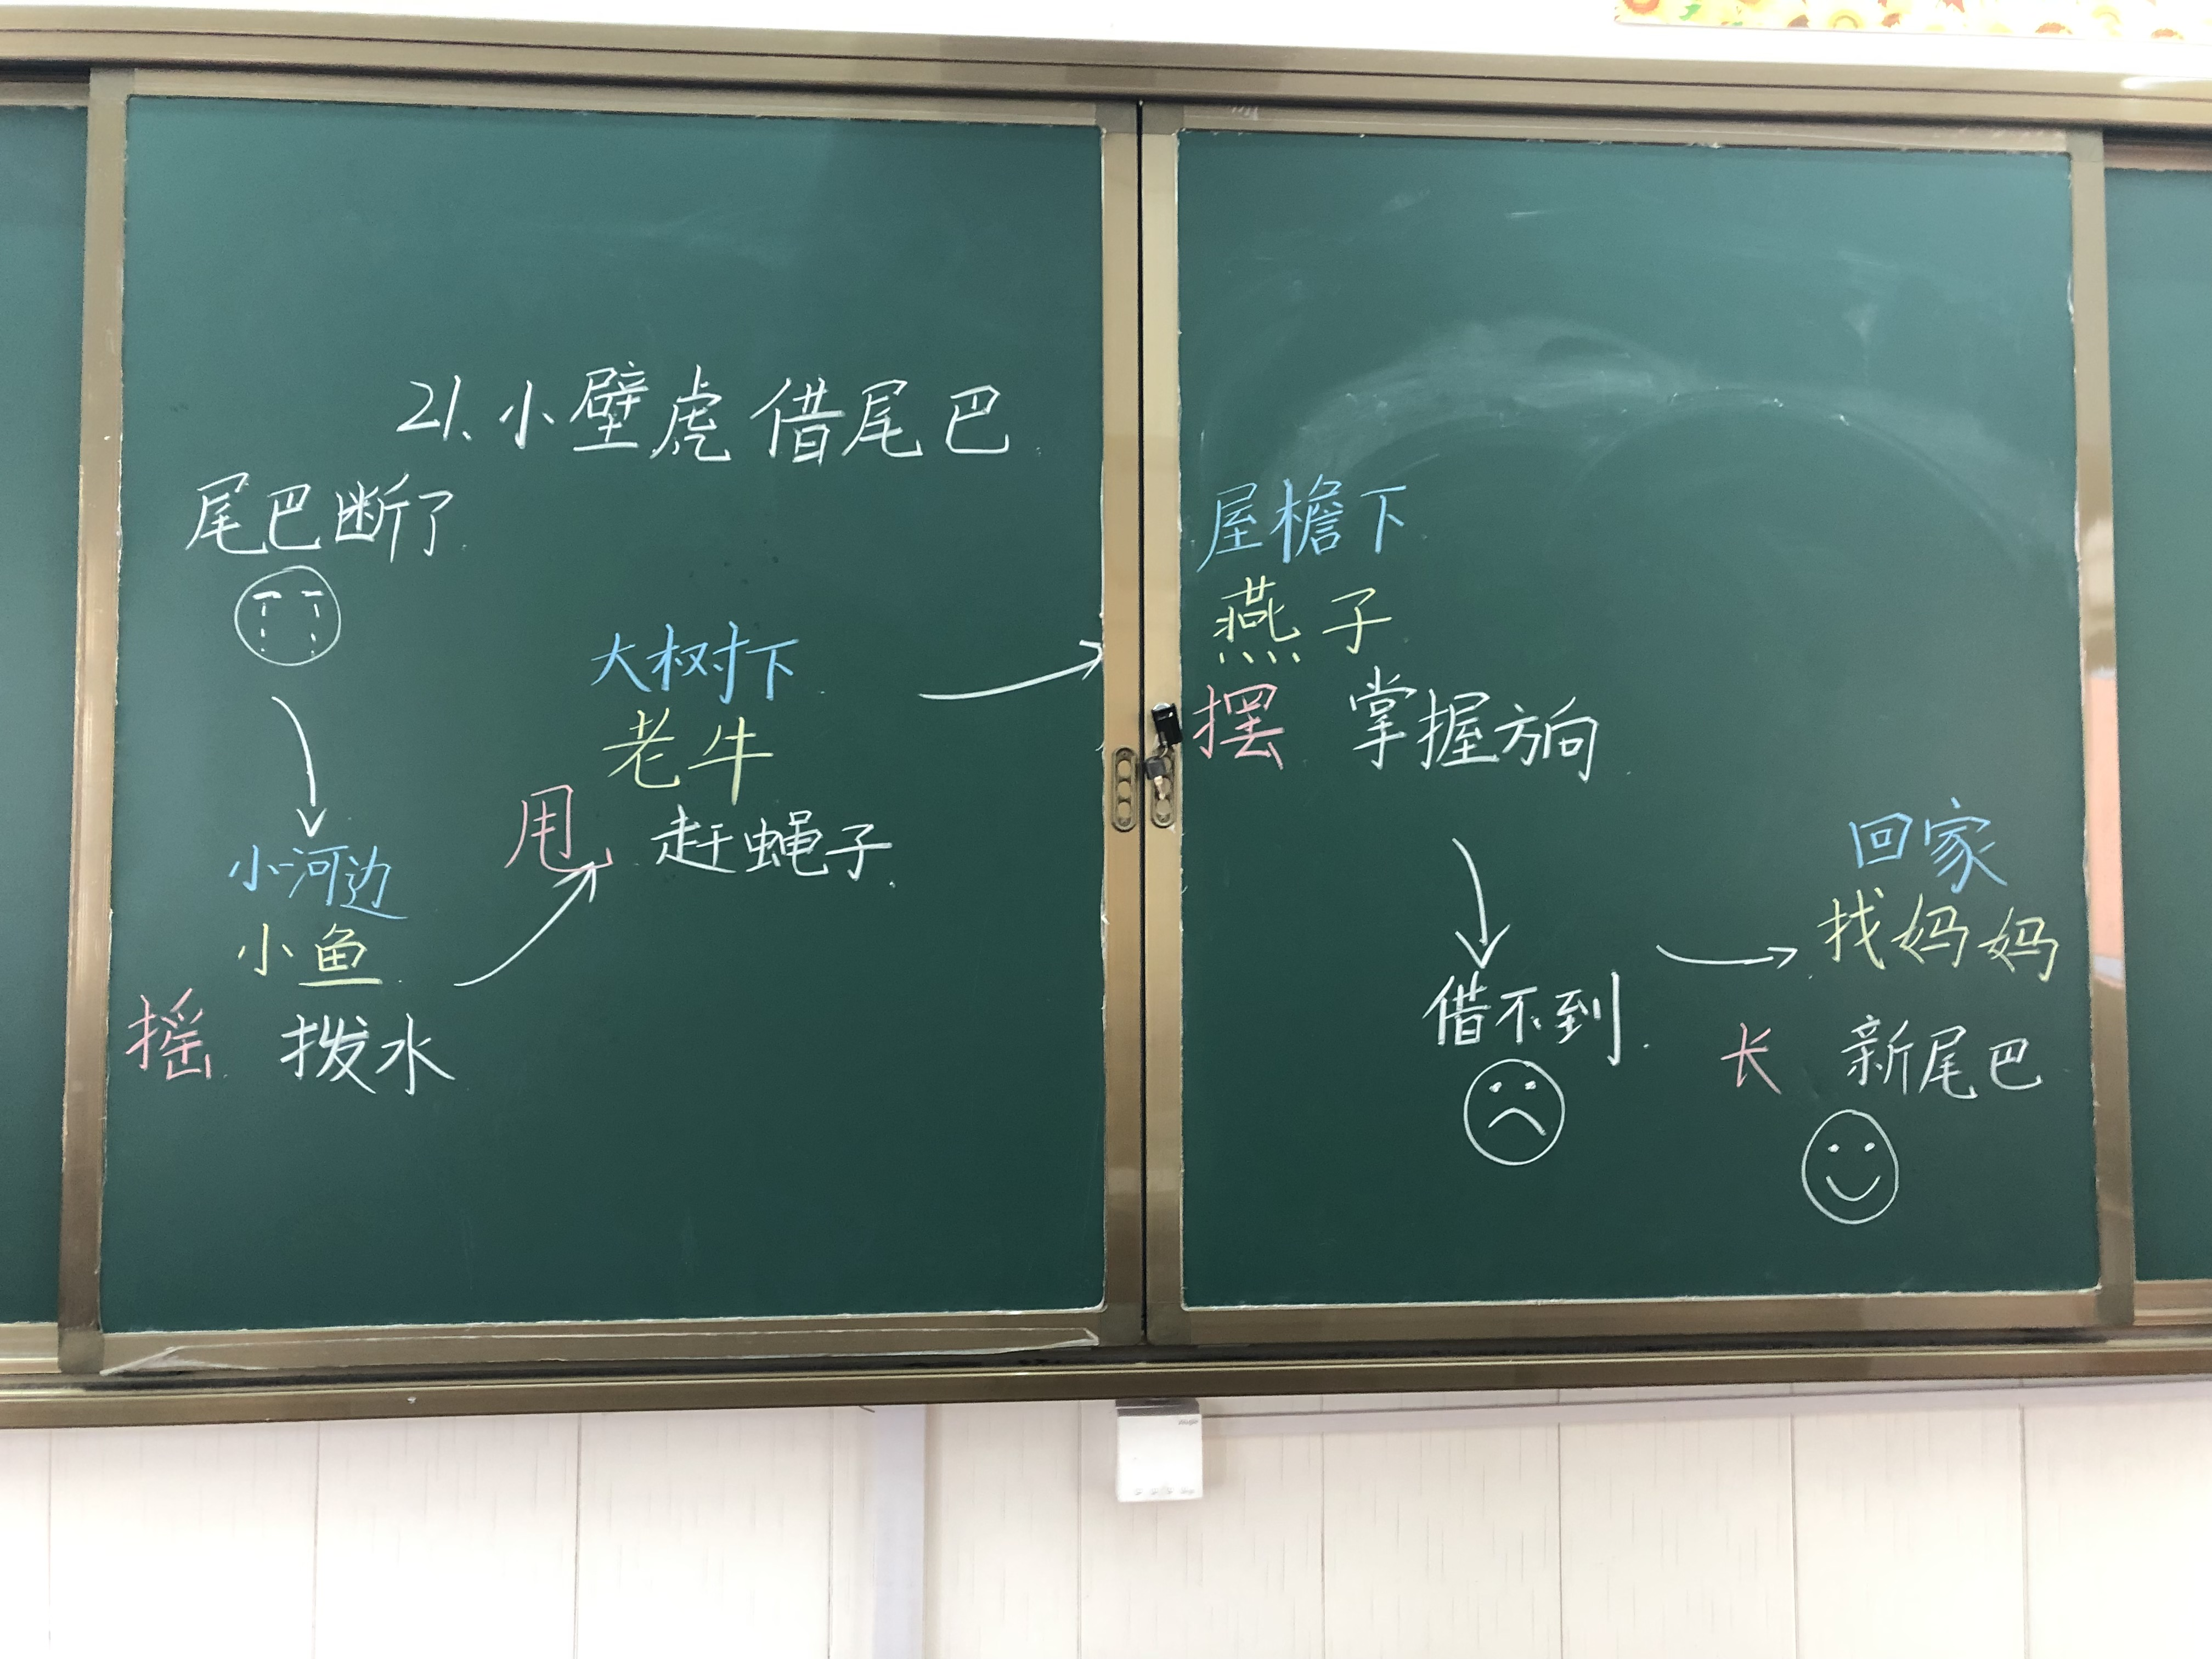 21、小壁虎借尾巴
尾巴断了
小河边
小鱼
摇 拨水
大树下
老牛
甩 赶蝇子
屋檐下
燕子
摆 掌握方向
借不到
回家
找妈妈
长 新尾巴